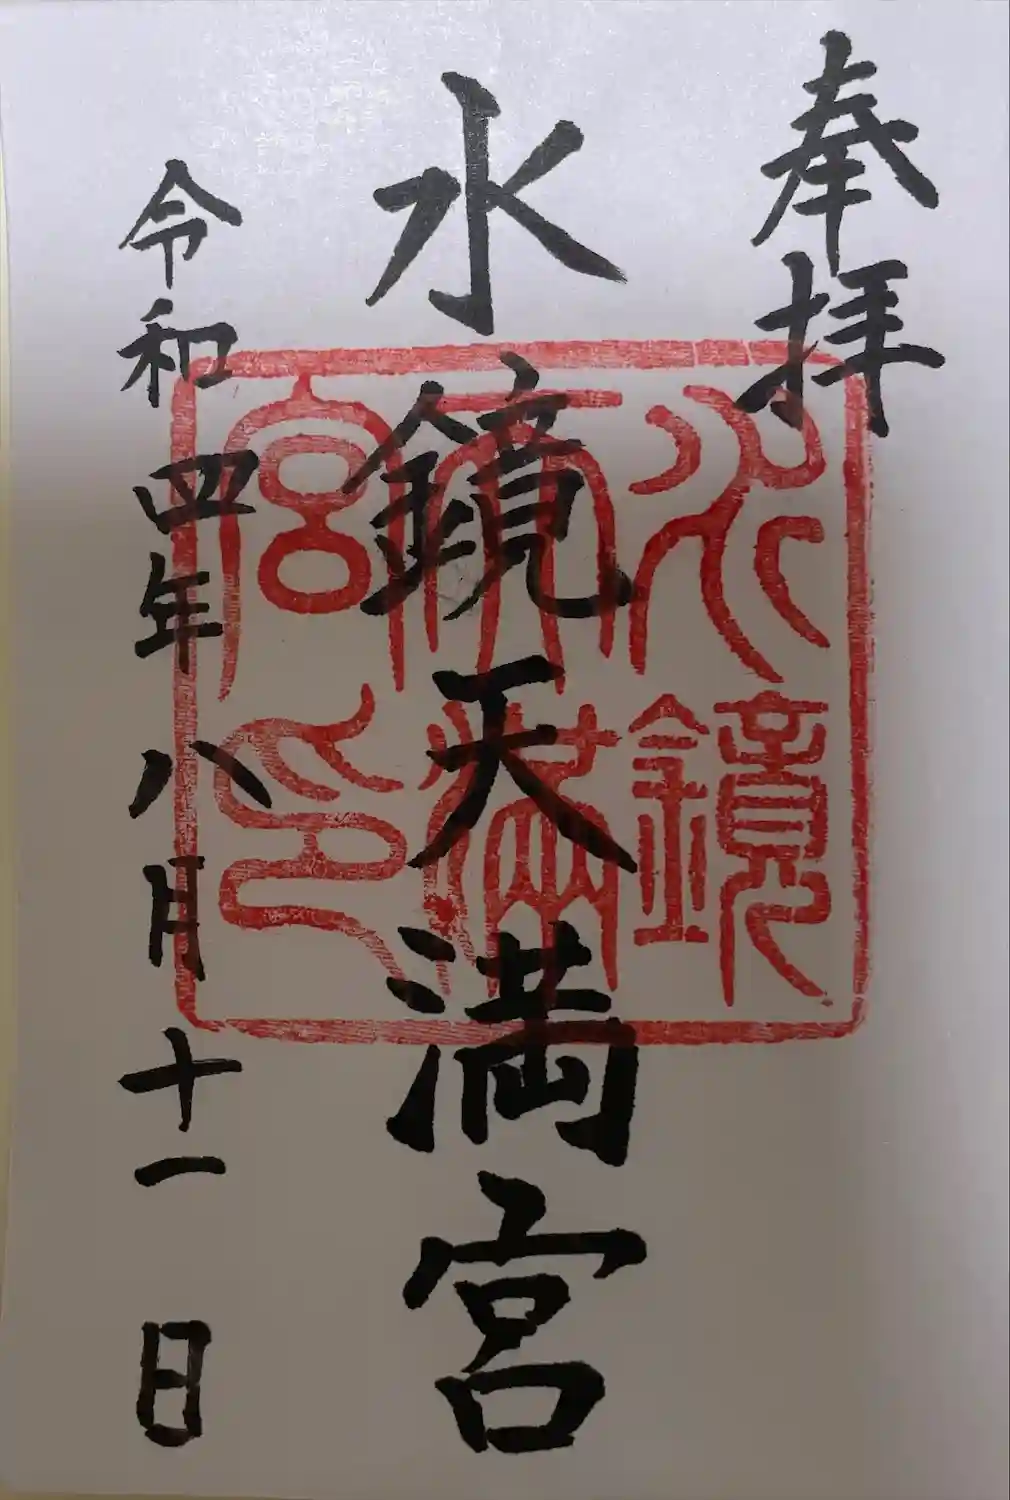 奉拝
水鏡天満宮
令和四年八月十一日
水鏡
天満
宮印